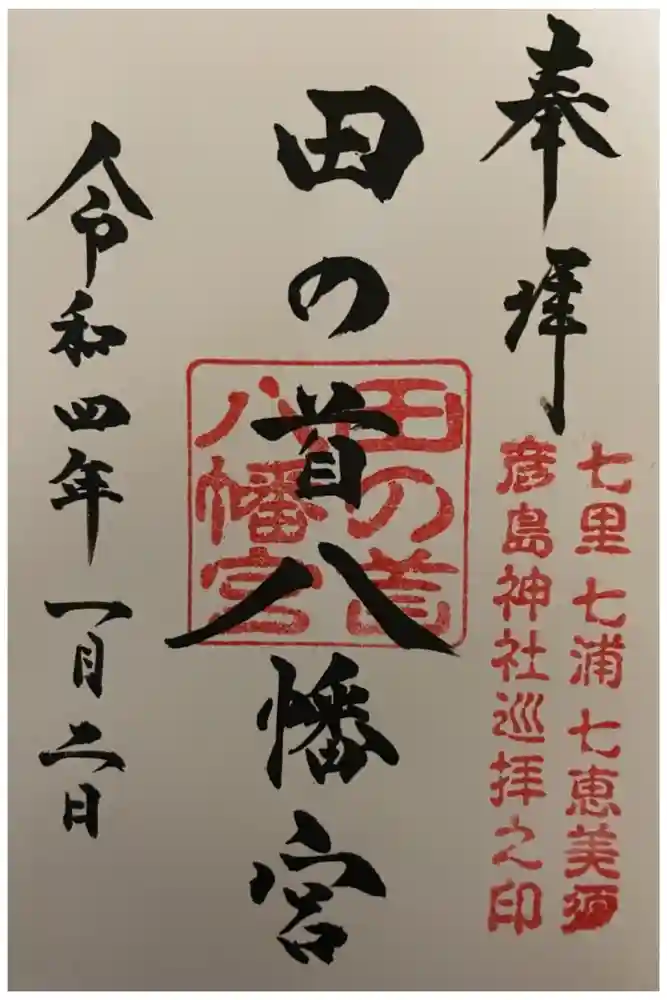 奉拝
七里七浦七恵美須
彦島神社巡拝之印
田の首八幡宮
田の首
八幡宮
令和四年一月二日